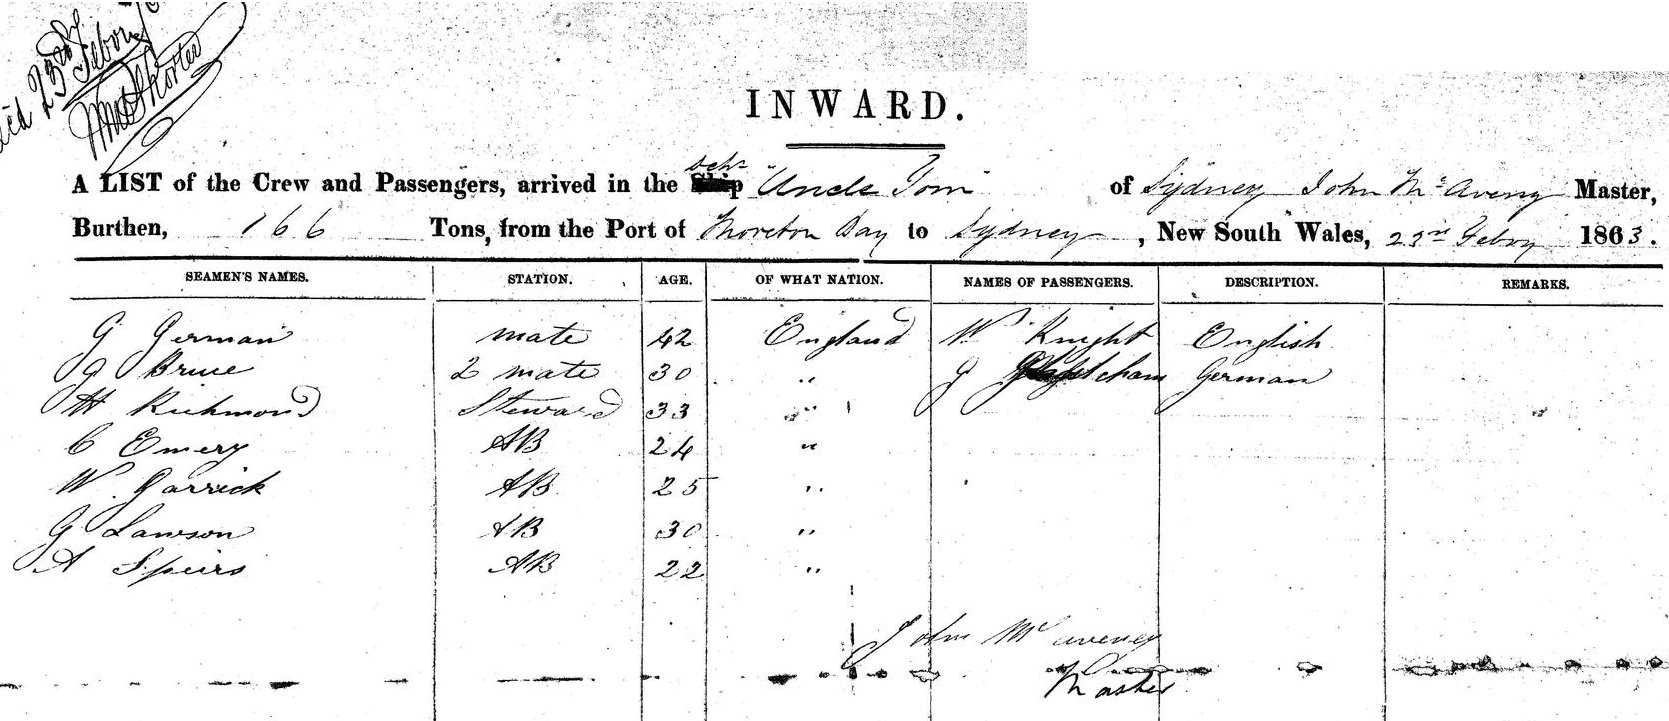 23rd Febry
INWARD.
A LIST of the Crew and Passengers, arrived in the Schr "Uncle Tom" of Sydney John McAveny Master,
Burthen, 166 Tons, from the Port of Moreton Bay to Sydney, New South Wales, 23rd Febry 1863.
SEAMEN'S NAMES. STATION. AGE. OF WHAT NATION. NAMES OF PASSENGERS. DESCRIPTION. REMARKS.
G German mate 42 England W. Knight English
J Bruce 2 mate 30 " J German
H Richmond Steward 33 "
C Emery AB 24 "
W. Garrick AB 25 "
G Lawson AB 30 "
A Speirs AB 22 "
John McAveney
Master